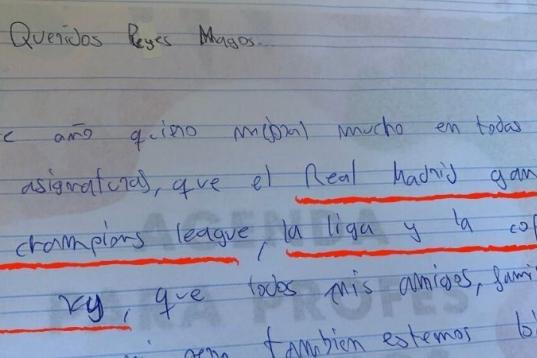 Queridos Reyes Magos...
año quiero mejorar mucho en todas
asignaturas, que el Real Madrid gan
champions league, la liga y la cop
rey, que todos mis amigos, fami
tambien estemos
AGENDA
PARA PROFES